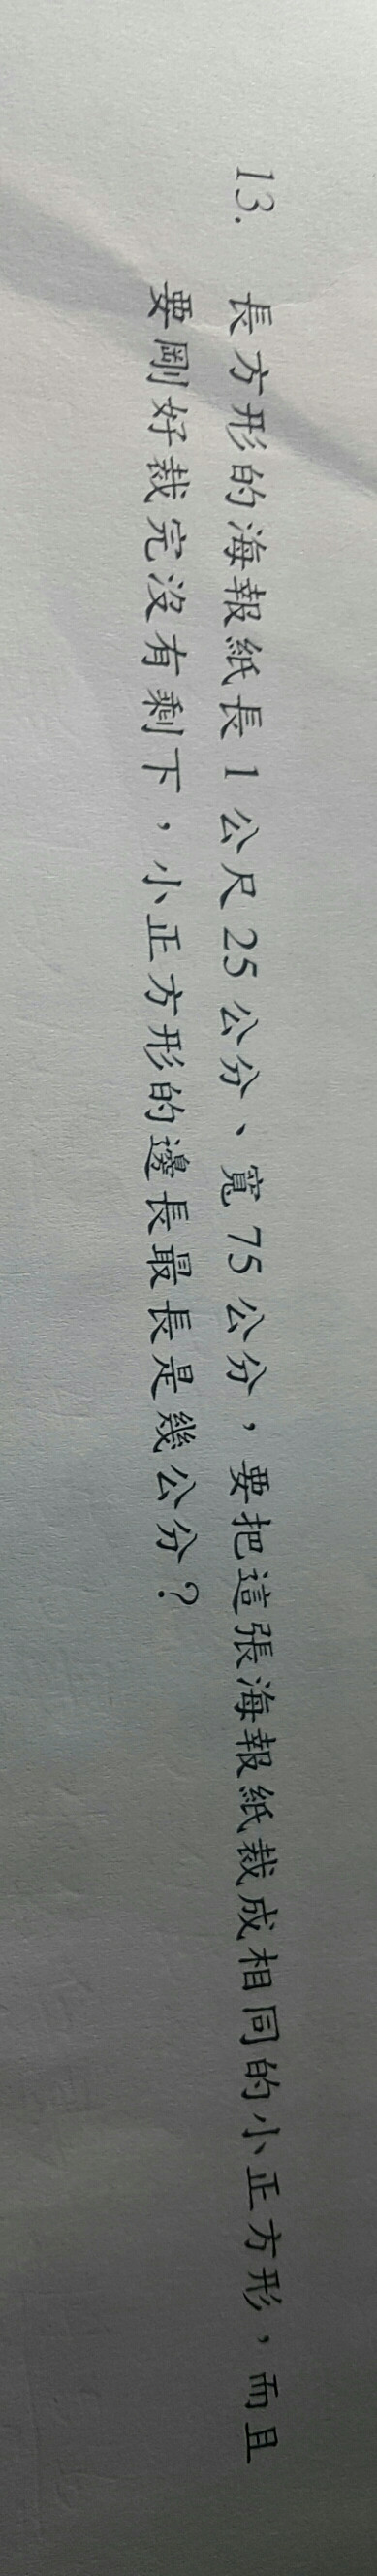 13. 長方形的海報紙長1公尺25公分、寬75公分，要把這張海報紙裁成相同的小正方形，而且
要剛好裁完沒有剩下，小正方形的邊長最長是幾公分？